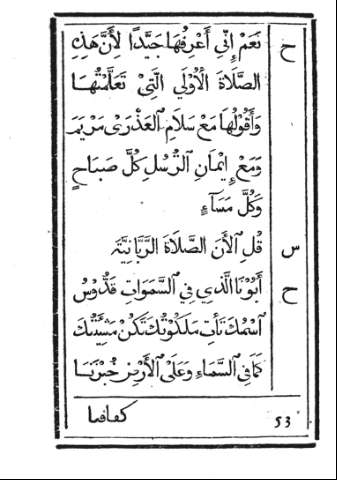 ح نَعَمْ إِنِّي أَعْرِفُهَا جَيِّدًا لِأَنَّ هَذِهِ
الصَّلَاةَ الْأُوْلَي الَّتِيْ تَعَلَّمْتُهَا
وَأَقُوْلُهَا مَعْ سَلَامِ الْعَذْرَىْ مَرْيَمَ
وَمَعْ إِيْمَانِ الرُّسُلِ كُلَّ صَبَاحٍ
وَكُلَّ مَسَآءٍ
س قُلِ الْأَنَ الصَّلَاةَ الرَّبَّانِيَّةَ
ح أَبُوْنَا الَّذِي فِي السَّمَوَاتِ قَدُّوْسُ
اسْمُكَ تَأْتِ مَلَكُوْتُكَ تَكُنْ مَشِيَّتُكَ
كَمَا فِي السَّمَاءِ وَعَلَى الْأَرْضِ خُبْزَنَا
كفافنا
53